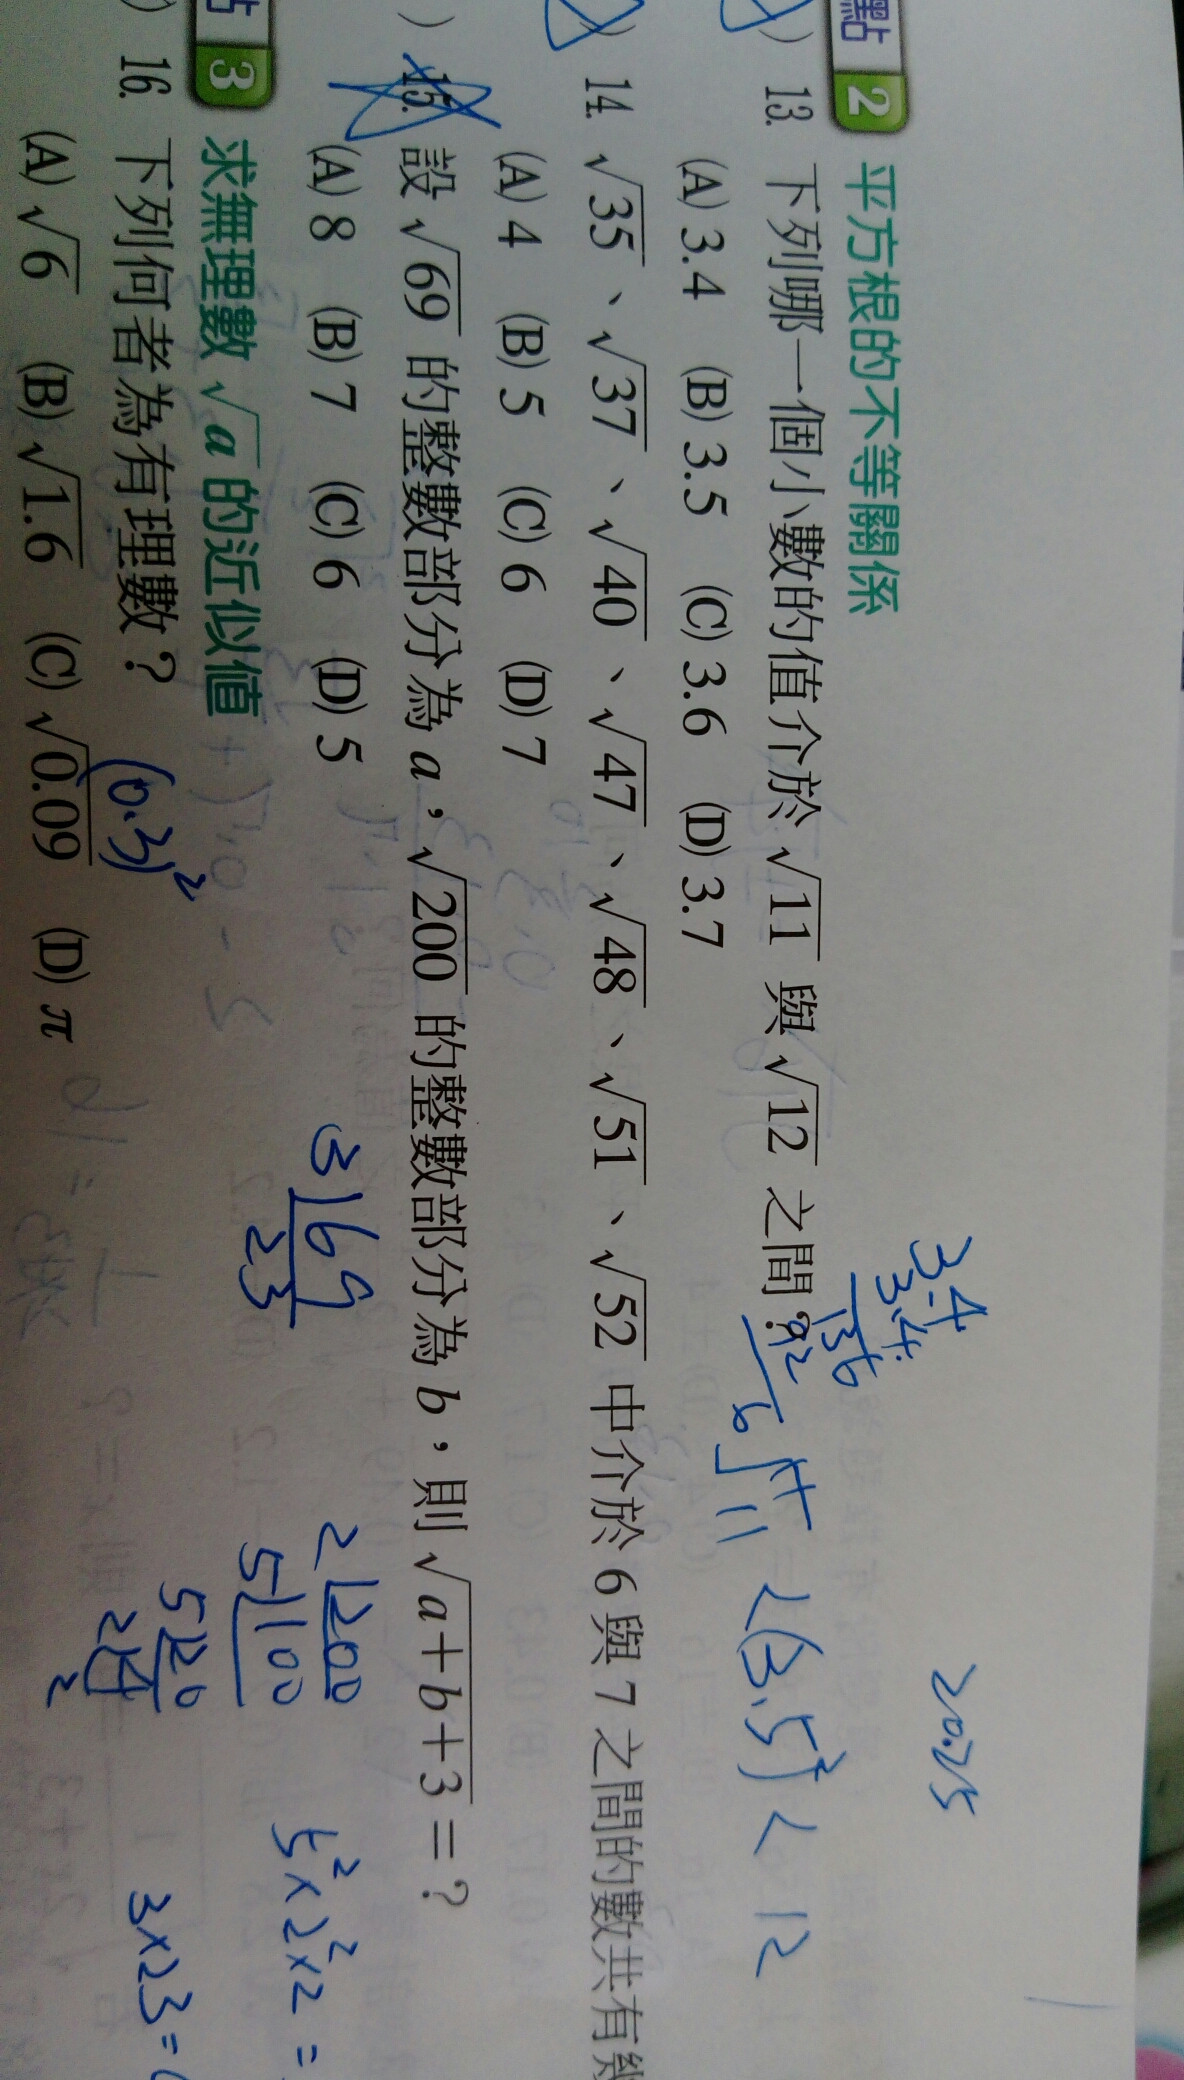 2 平方根的不等關係
) 13. 下列哪一個小數的值介於 √11 與 √12 之間?
(A) 3.4 (B) 3.5 (C) 3.6 (D) 3.7
) 14. √35、√37、√40、√47、√48、√51、√52 中介於 6 與 7 之間的數共有
(A) 4 (B) 5 (C) 6 (D) 7
) 15. 設 √69 的整數部分為 a,√200 的整數部分為 b,則 √(a+b+3) =?
(A) 8 (B) 7 (C) 6 (D) 5
3 求無理數 √a 的近似值
) 16. 下列何者為有理數?
(A) √6 (B) √1.6 (C) √0.09 (D) π
20.25
3.4
3.4
136
92
11 < (3.5)² < 12
(0.3)²
3|69
23
2|200
5|100
5|20
2
5²×2²×2=
3×23=